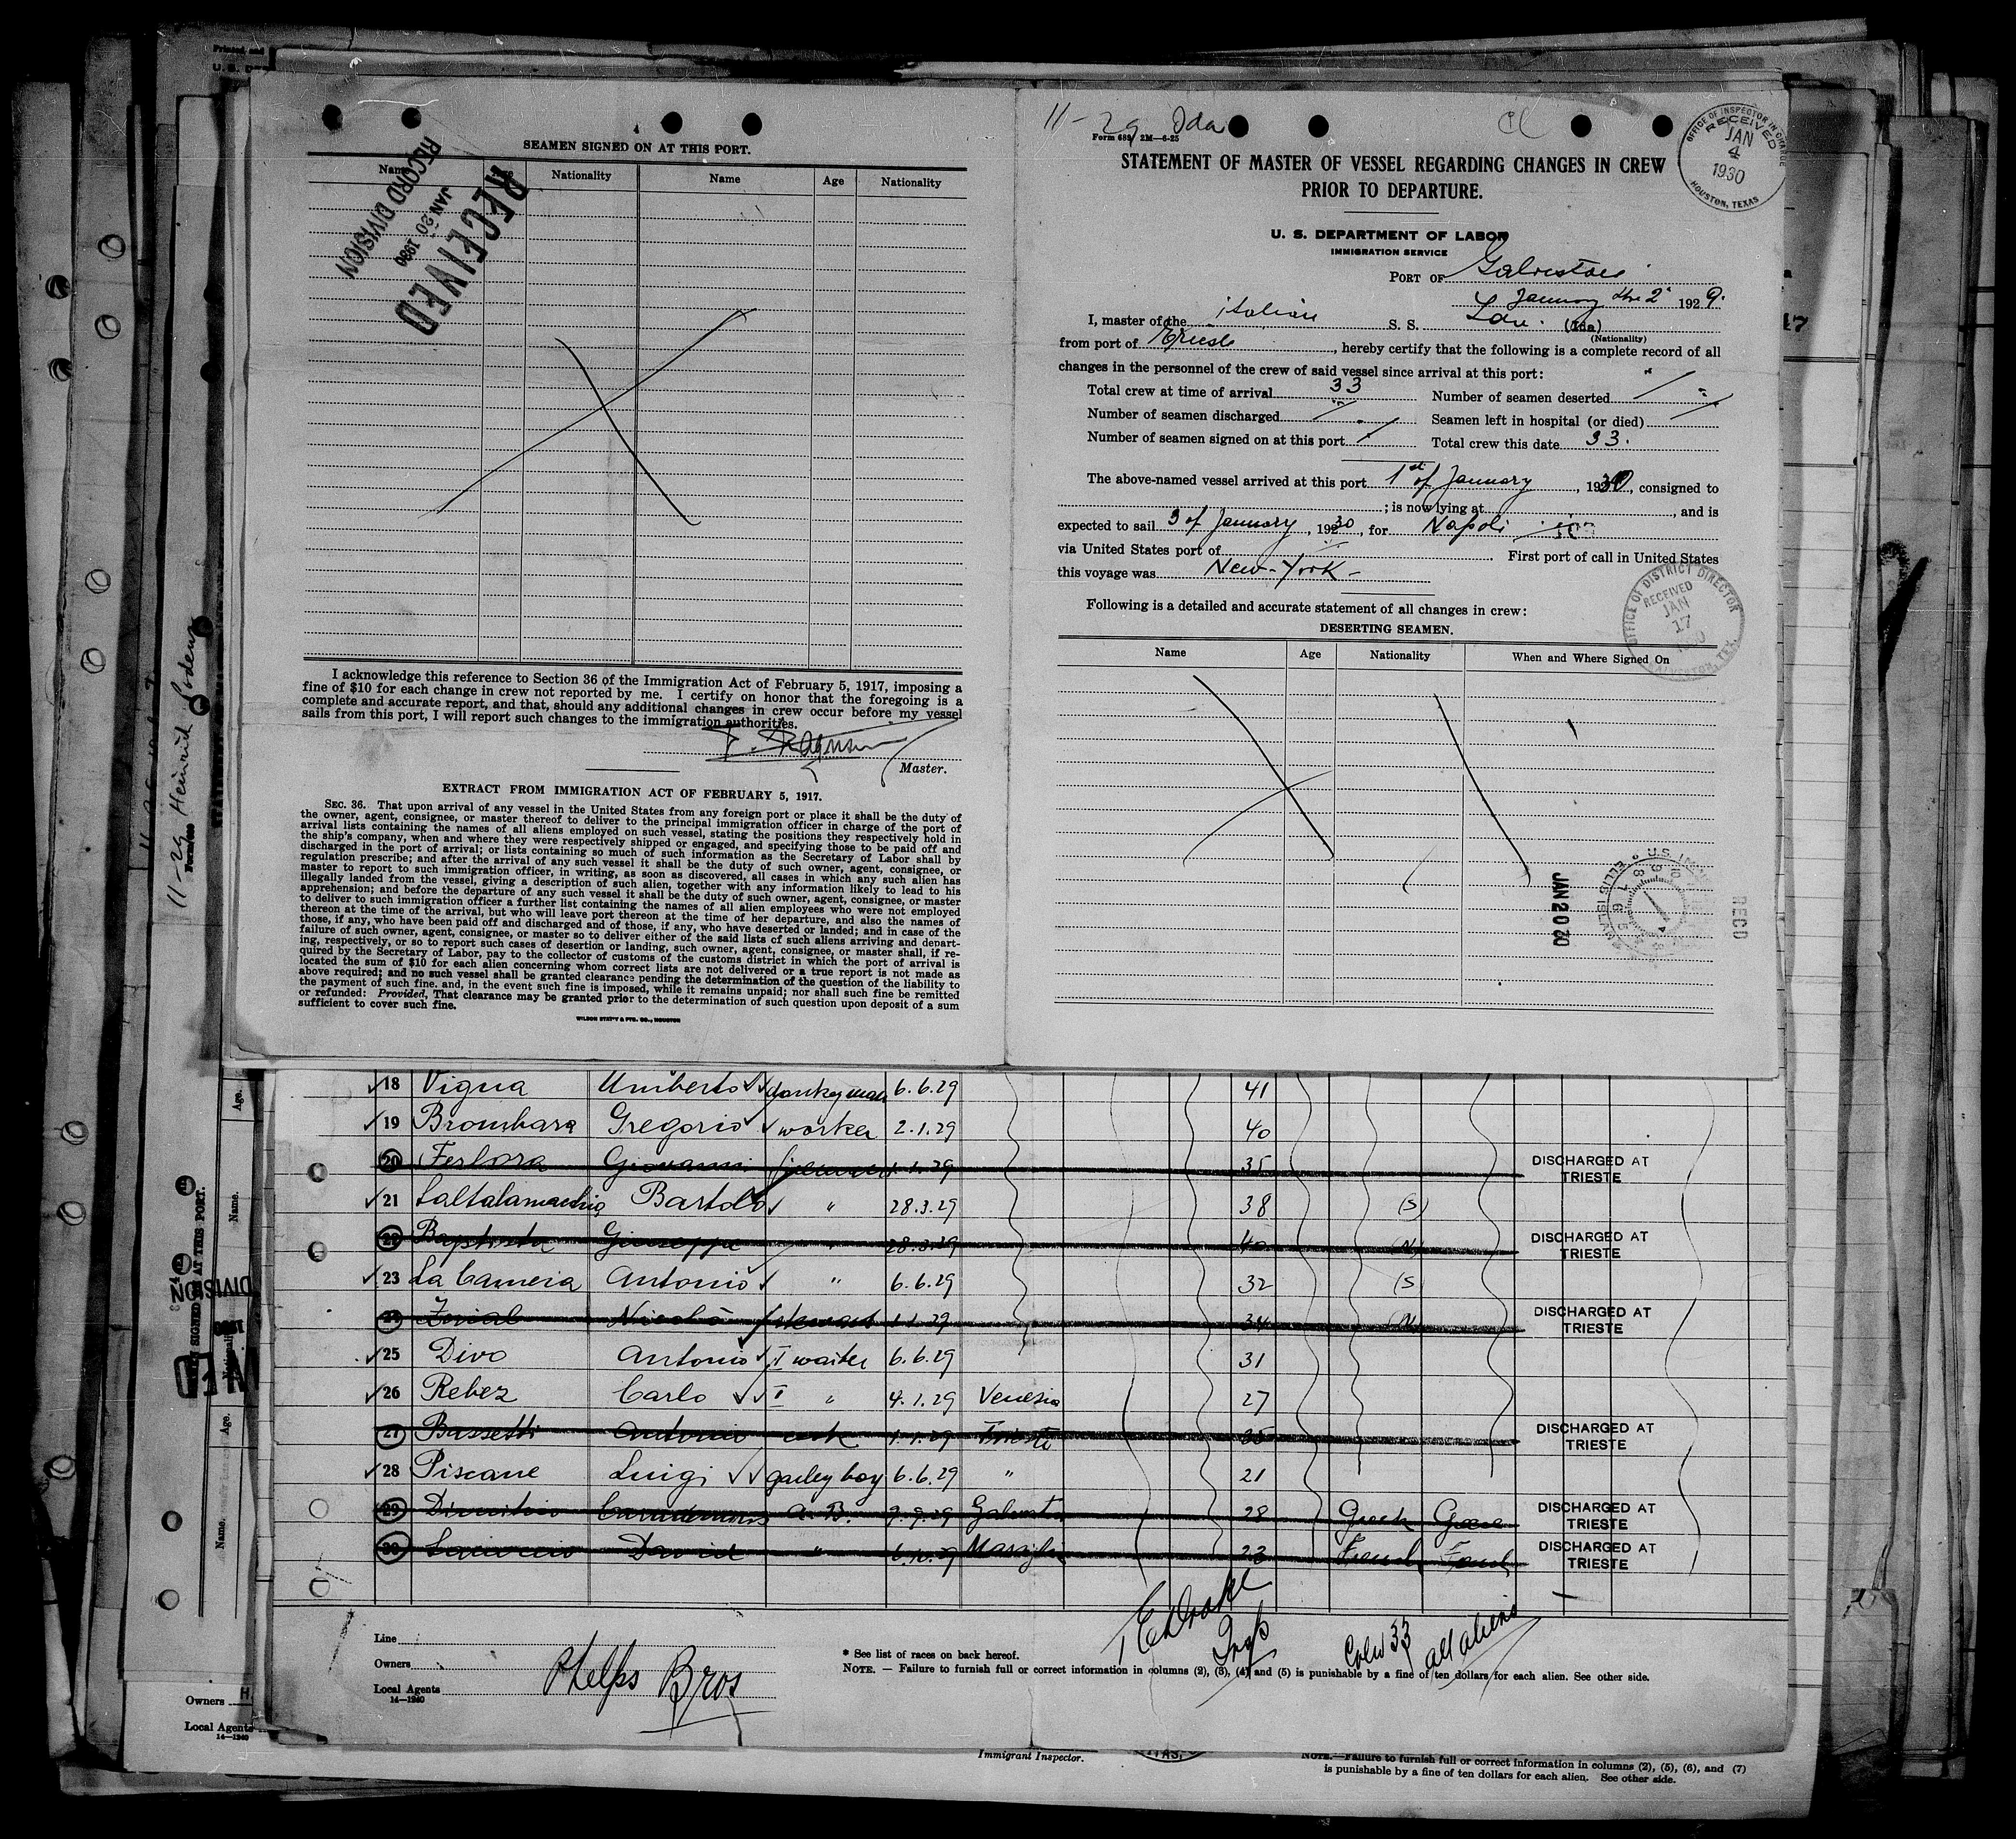 SEAMEN SIGNED ON AT THIS PORT.
Name Nationality Name Age Nationality
RECEIVED
JAN 20 1930
RECORD DIVISION
I acknowledge this reference to Section 36 of the Immigration Act of February 5, 1917, imposing a
fine of $10 for each change in crew not reported by me. I certify on honor that the foregoing is a
complete and accurate report, and that, should any additional changes in crew occur before my vessel
sails from this port, I will report such changes to the immigration authorities.
Master.
EXTRACT FROM IMMIGRATION ACT OF FEBRUARY 5, 1917.
SEC. 36. That upon arrival of any vessel in the United States from any foreign port or place it shall be the duty of
the owner, agent, consignee, or master thereof to deliver to the principal immigration officer in charge of the port of
arrival lists containing the names of all aliens employed on such vessel, stating the positions they respectively hold in
the ship's company, when and where they were respectively shipped or engaged, and specifying those to be paid off and
discharged in the port of arrival; or lists containing so much of such information as the Secretary of Labor shall by
regulation prescribe; and after the arrival of any such vessel it shall be the duty of such owner, agent, consignee, or
master to report to such immigration officer, in writing, as soon as discovered, all cases in which any such alien has
illegally landed from the vessel, giving a description of such alien, together with any information likely to lead to his
apprehension; and before the departure of any such vessel it shall be the duty of such owner, agent, consignee, or master
to deliver to such immigration officer a further list containing the names of all alien employees who were not employed
thereon at the time of the arrival, but who will leave port thereon at the time of her departure, and also the names of
those, if any, who have been paid off and discharged and of those, if any, who have deserted or landed; and in case of the
failure of such owner, agent, consignee, or master so to deliver either of the said lists of such aliens arriving and depart-
ing, respectively, or so to report such cases of desertion or landing, such owner, agent, consignee, or master shall, if re-
quired by the Secretary of Labor, pay to the collector of customs of the customs district in which the port of arrival is
located the sum of $10 for each alien concerning whom correct lists are not delivered or a true report is not made as
above required; and no such vessel shall be granted clearance pending the determination of the question of the liability to
the payment of such fine. and, in the event such fine is imposed, while it remains unpaid; nor shall such fine be remitted
or refunded: Provided, That clearance may be granted prior to the determination of such question upon deposit of a sum
sufficient to cover such fine.
WILSON STAT'Y & PTG. CO., HOUSTON
11-29 Ida
Form 689 2M—6-25
OFFICE OF INSPECTOR IN CHARGE
RECEIVED
JAN
4
1930
HOUSTON, TEXAS
STATEMENT OF MASTER OF VESSEL REGARDING CHANGES IN CREW
PRIOR TO DEPARTURE.
U. S. DEPARTMENT OF LABOR
IMMIGRATION SERVICE
PORT OF Galveston
January the 2 1929.
I, master of the italian S. S. Ida. (Ida)
(Nationality)
from port of Trieste, hereby certify that the following is a complete record of all
changes in the personnel of the crew of said vessel since arrival at this port:
Total crew at time of arrival 33 Number of seamen deserted
Number of seamen discharged Seamen left in hospital (or died)
Number of seamen signed on at this port Total crew this date 33.
The above-named vessel arrived at this port 1st of January, 1930, consigned to
; is now lying at , and is
expected to sail 3 of January, 1930, for Napoli
via United States port of First port of call in United States
this voyage was New-York-
Following is a detailed and accurate statement of all changes in crew:
DESERTING SEAMEN.
Name Age Nationality When and Where Signed On
OFFICE OF DISTRICT DIRECTOR
RECEIVED
JAN
17
JAN 20 30
RECD
18 Vigna Umberto donkeyman 6.6.29 41
19 Brombara Gregorio worker 2.1.29 40
20 Ferlora Giovanni fireman 1.1.29 35 DISCHARGED AT TRIESTE
21 Saltalamachia Bartolo " 28.3.29 38 (S)
22 Baptista Giuseppe " 28.3.29 40 (N) DISCHARGED AT TRIESTE
23 La Cameia Antonio " 6.6.29 32 (S
24 Nicolò steward 1.1.29 34 (N) DISCHARGED AT TRIESTE
25 Divo Antonio I waiter 6.6.29 31
26 Rebez Carlo I " 4.1.29 Venezia 27
27 Bassetti Antonio cook 1.1.29 Trieste 35 DISCHARGED AT TRIESTE
28 Piscane Luigi galley boy 6.6.29 " 21
29 A.B. 9.9.29 Galveston 28 Greek Greece DISCHARGED AT TRIESTE
30 David " 6.10.29 Marsiglia 23 French DISCHARGED AT TRIESTE
Line
Owners
Local Agents Phelps Bros
14—1240
* See list of races on back hereof.
NOTE. — Failure to furnish full or correct information in columns (2), (3), (4) and (5) is punishable by a fine of ten dollars for each alien. See other side.
Crew 33 all aliens
Immigrant Inspector.
NOTE.—Failure to furnish full or correct information in columns (2), (5), (6), and (7)
is punishable by a fine of ten dollars for each alien. See other side.
Owners
Local Agents
14—1240
11-29 Heinrich